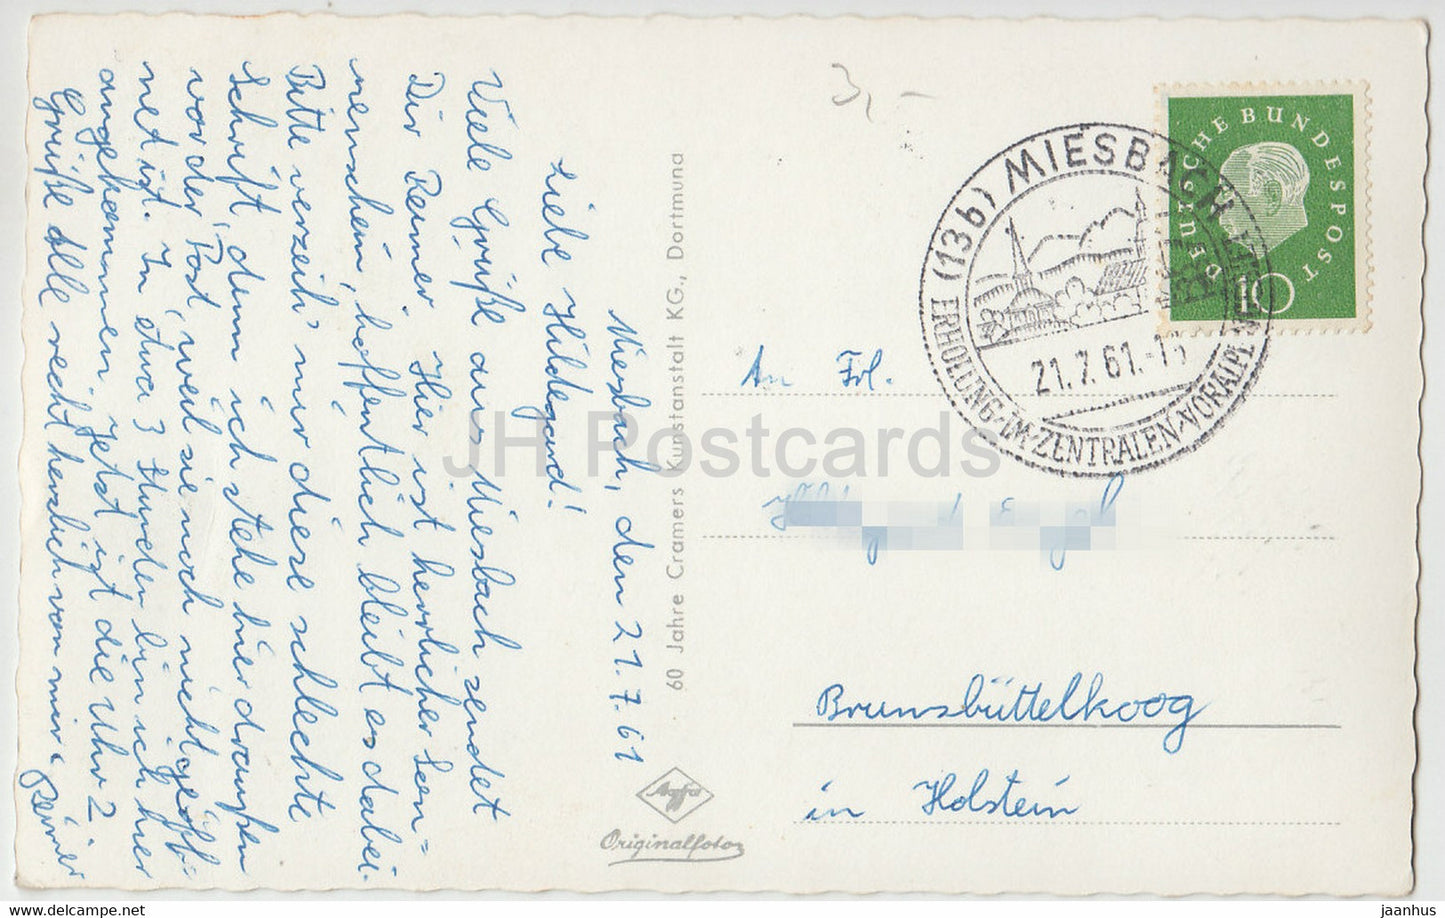 Miesbach, den 21.7.61
Liebe Hildegard!
Viele Grüße aus Miesbach sendet
Dir Reiner. Hier ist herrlicher Son=
nenschein, hoffentlich bleibt es dabei.
Bitte verzeih' mir diese schlechte
Schrift, denn ich stehe hier draußen
vor der 'Post', weil sie noch nicht geöff-
net ist. In etwa 3 Stunden bin ich hier
angekommen. Jetzt ist die Uhr 2.
Grüße Alle recht herzlich von mir. Reiner
60 Jahre Cramers Kunstanstalt KG., Dortmund
Agfa
Originalfoto
3,-
DEUTSCHE BUNDESPOST
10
(13b) MIESBACH
21.7.61.-15
ERHOLUNG·IM·ZENTRALEN·VORALPENGEBIET
An Frl.
Brunsbüttelkoog
in Holstein
JH Postcards
www.delcampe.net
jaanhus